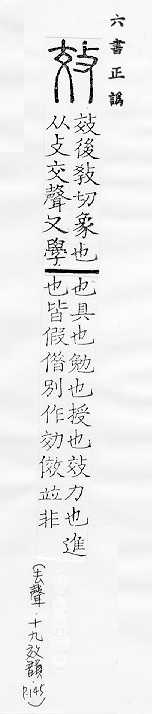 六書正譌
效
效後教切象也
从攴交聲又學
也具也勉也授也效力也進
也皆假借別作効傚並非
(去聲·十九效韻 P.145)